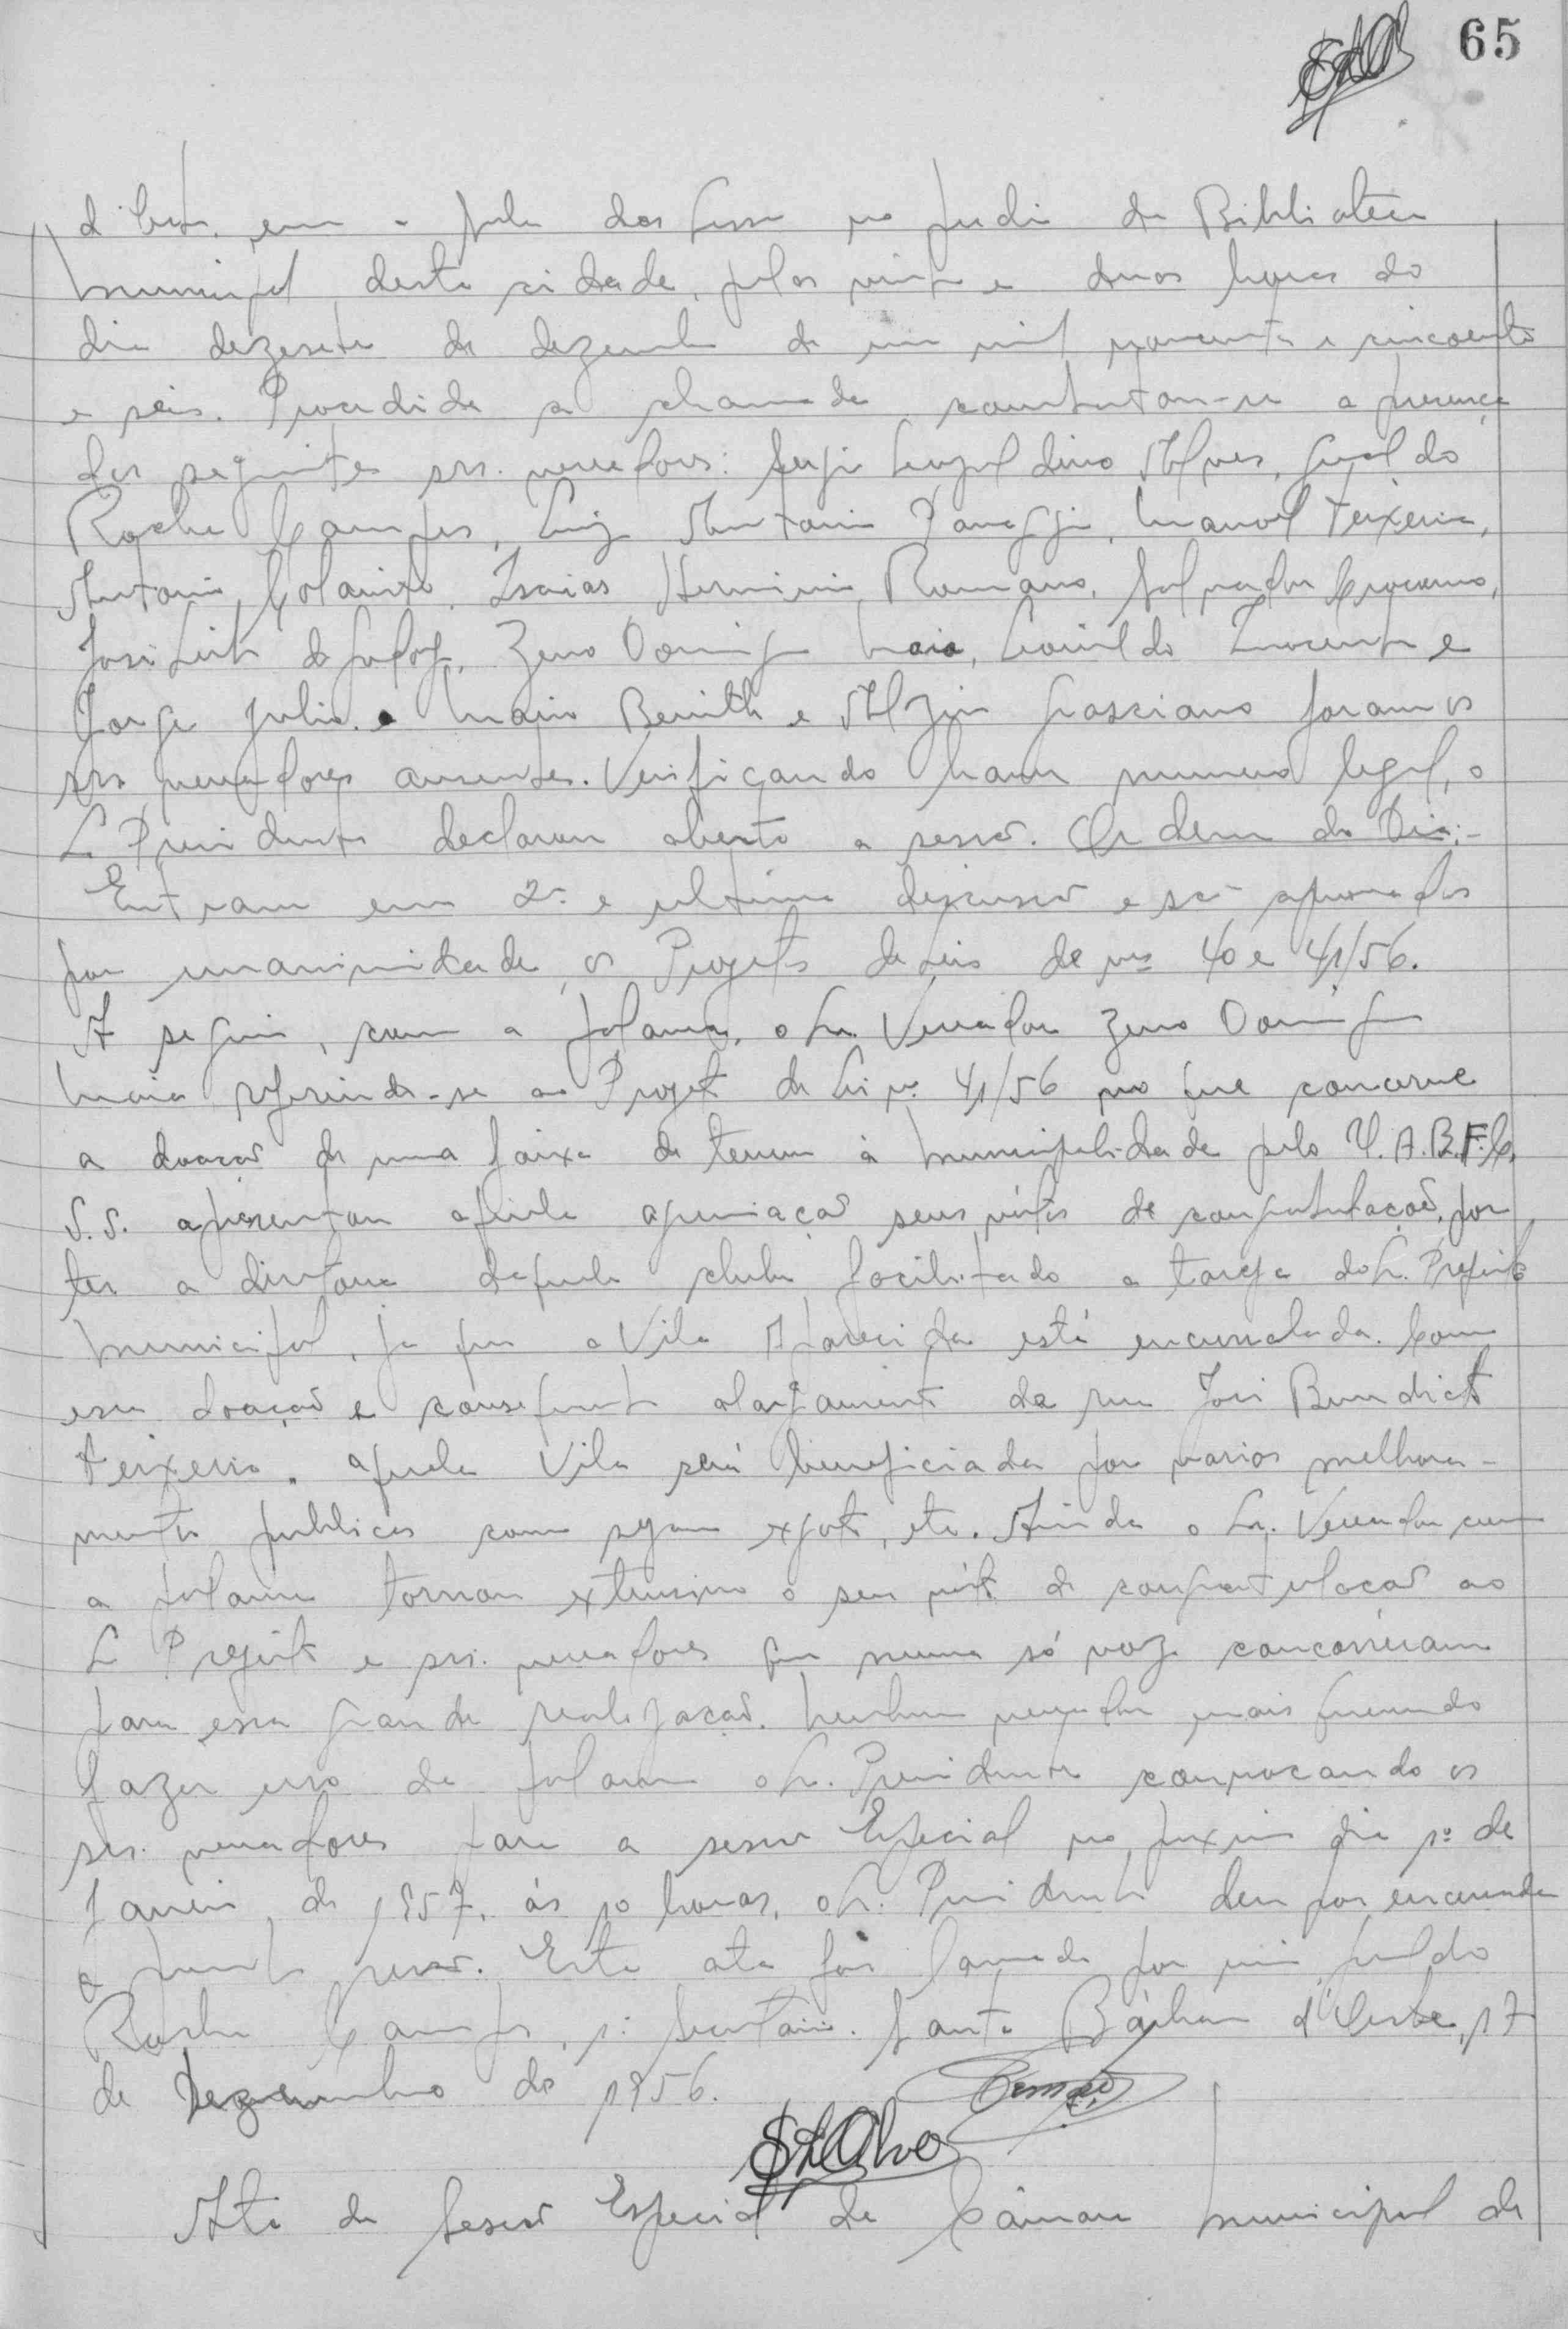 65
d'Oeste, em a sala das Sessões no predio da Biblioteca
Municipal desta cidade, pelas vinte e duas horas do
dia dezesete de dezembro de um mil novecentos e cincoenta
e seis. Procedida a chamada constatou-se a presença
dos seguintes srs. vereadores: Sergio Leopoldino Alves, Geraldo
Rocha Campos, Luiz Antonio Panaggio, Manoel Teixeira,
Antonio Colanito, Isaias Herminio Romano, Salvador
José Leite de Godoy, Zeno Domingos Maia, Leonildo Inocente e
Jorge Julio. e Mario Benith e Alzir Grasciano foram os
srs vereadores ausentes. Verificando haver numero legal, o
Sr Presidente declarou aberta a sessão. Ordem do Dia:-
Entram em 2ª e ultima discussão e são aprovados
por unanimidade os Projetos de Leis de nºs 40 e 41/56.
A seguir, com a palavra, o Sr. Vereador Zeno Domingos
Maia referindo-se ao Projeto de Lei nº 41/56 no que concerne
a doação de uma faixa de terreno à Municipalidade pelo U.A.B.F.C.
S.S. apresentou aquela agremiação seus vótos de congratulações, por
ter a diretoria daquele clube facilitado a tarefa do Sr. Prefeito
Municipal, ja que a Vila Aparecida está encurralada. Com
essa doação e consequente alargamento da rua José Benedicto
Teixeira, aquela Vila será beneficiada por varios melhora-
mentos publicos como sejam exgoto, etc. Ainda o Sr. Vereador com
a palavra tornou extensivo o seu vóto de congratulação ao
Sr Prefeito e srs. vereadores que numa só voz concorreram
para essa grande realização. Nenhum vereador mais querendo
fazer uso da palavra o Sr. Presidente convocando os
srs. vereadores para a sessão Especial no proximo dia 1º de
Janeiro de 1957, ás 10 horas, o Sr. Presidente deu por encerrada
a presente sessão. Esta ata foi lavrada por mim Geraldo
Rocha Campos, 1º Secretário. Santa Bárbara d'Oeste, 17
de Dezembro de 1956.
Campos
SLAlves
Ata da Sessão Especial da Câmara Municipal de